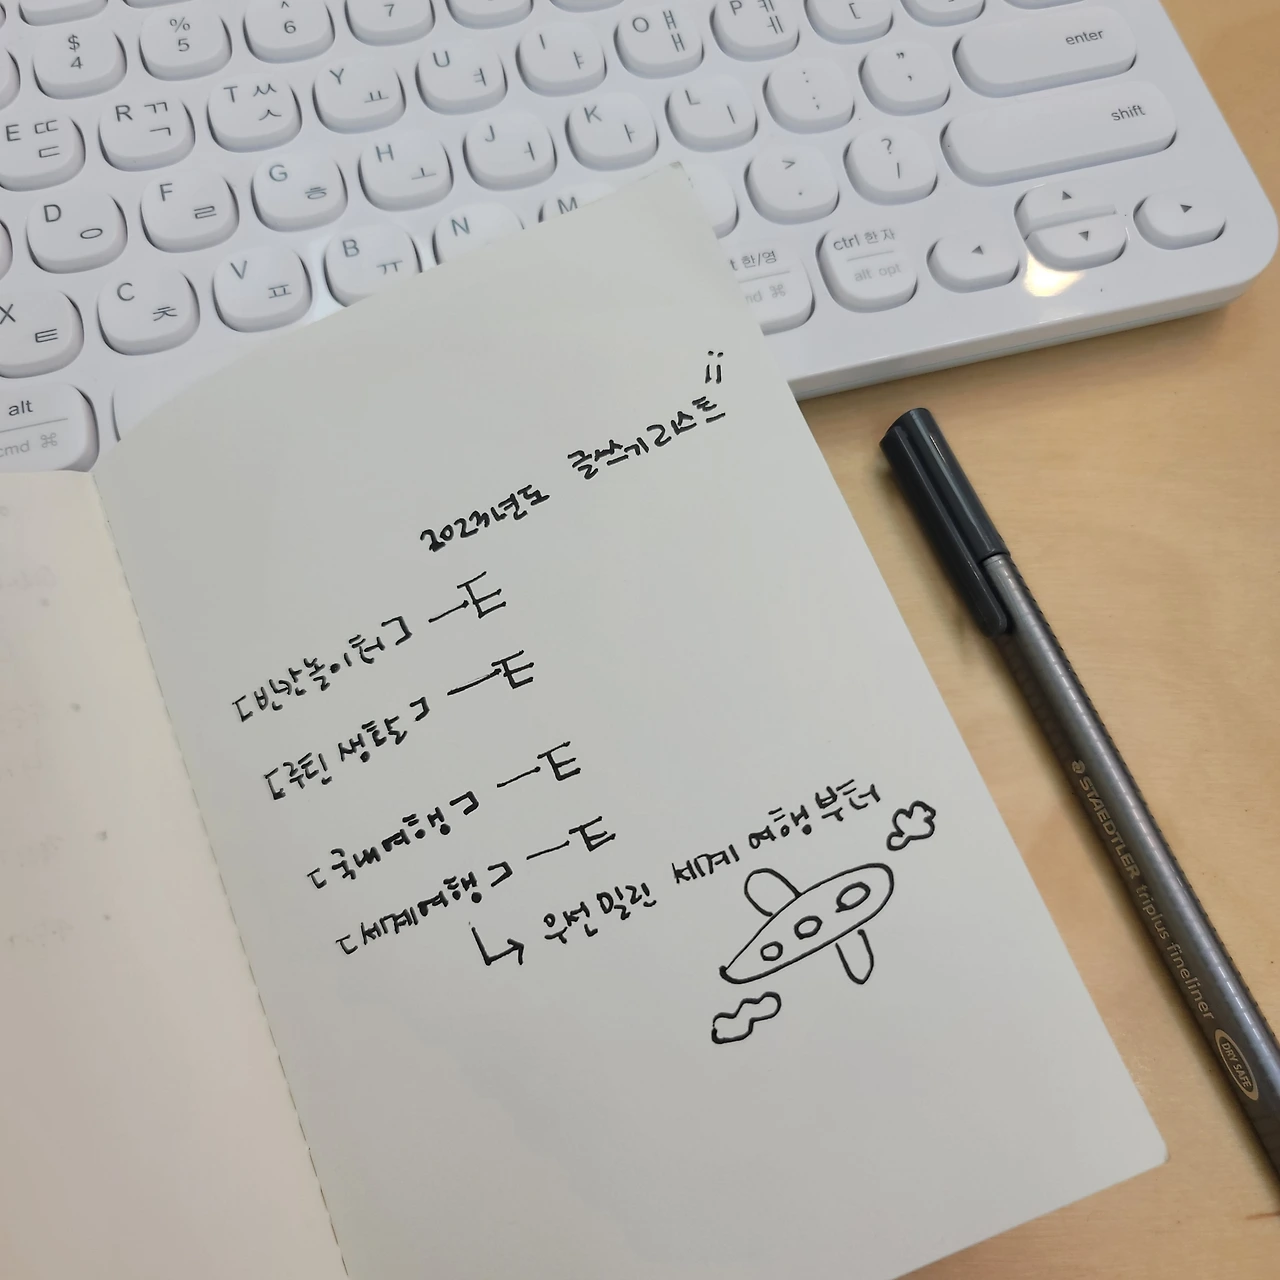 $ 4
% 5
^ 6
7
E ㄸ ㄷ
R ㄲ ㄱ
T ㅆ ㅅ
Y ㅛ
U ㅕ
I ㅑ
O ㅒ ㅐ
P ㅖ ㅔ
[
enter
D ㅇ
F ㄹ
G ㅎ
H ㅗ
J ㅓ
K ㅏ
L ㅣ
: ;
" '
shift
X ㅌ
C ㅊ
V ㅍ
B ㅠ
N
M
> .
? /
alt
cmd ⌘
한/영
⌘
ctrl 한자
alt opt
2023년도 글쓰기 리스트
세계여행
우선 밀린 세계 여행부터
국내여행
STAEDTLER triplus fineliner
DRY SAFE